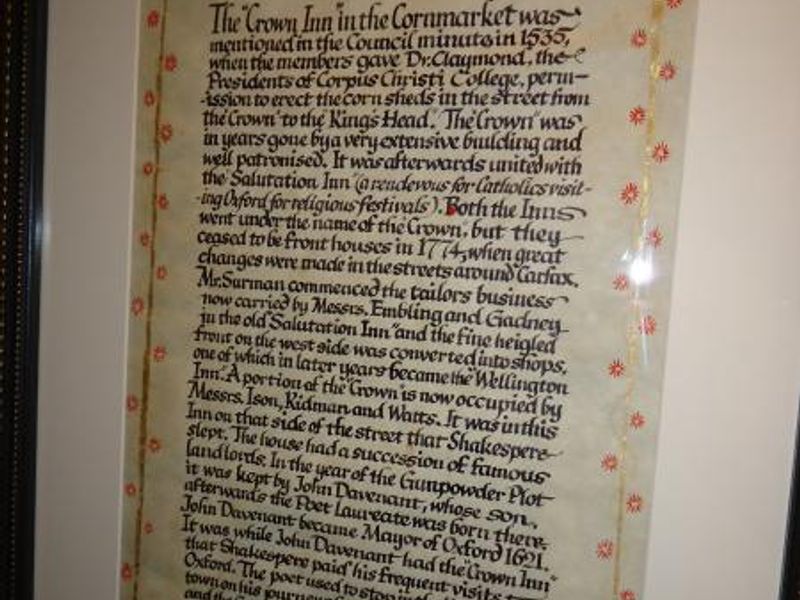 The "Crown Inn" in the Cornmarket was
mentioned in the Council minute in 1535,
when the members gave Dr. Claymond, the
Presidents of Corpus Christi College, perm-
-ission to erect the corn sheds in the street from
the 'Crown' to the 'King's Head'. The 'Crown' was
in years gone by a very extensive building and
well patronised. It was afterwards united with
the 'Salutation Inn' (a rendevous for Catholics visit-
-ing Oxford for religious festivals). Both the Inns
went under the name of the 'Crown', but they
ceased to be front houses in 1774, when great
changes were made in the streets around Carfax.
Mr. Surman commenced the tailors business
now carried by Messrs. Embling and Gadney
in the old "Salutation Inn" and the fine heigled
front on the west side was converted into shops,
one of which in later years became the "Wellington
Inn". A portion of the 'Crown' is now occupied by
Messrs. Ison, Kidman and Watts. It was in this
Inn on that side of the street that Shakespere
slept. The house had a succession of famous
landlords. In the year of the Gunpowder Plot
it was kept by John Davenant, whose son,
afterwards the Poet Laureate was born there.
John Davenant became Mayor of Oxford 1621.
It was while John Davenant had the "Crown Inn"
that Shakespere paid his frequent visits
Oxford. The poet used to stop in the
town on his
and the